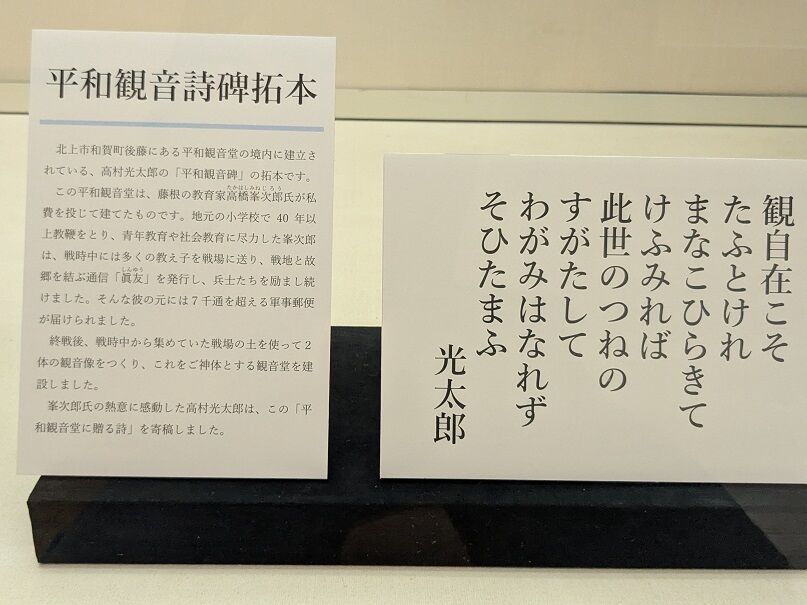 平和観音詩碑拓本
北上市和賀町後藤にある平和観音堂の境内に建立さ
れている、高村光太郎の「平和観音碑」の拓本です。
この平和観音堂は、藤根の教育家高橋峯次郎氏が私
費を投じて建てたものです。地元の小学校で 40 年以
上教鞭をとり、青年教育や社会教育に尽力した峯次郎
は、戦時中には多くの教え子を戦場に送り、戦地と故
郷を結ぶ通信「眞友」を発行し、兵士たちを励まし続
けました。そんな彼の元には７千通を超える軍事郵便
が届けられました。
終戦後、戦時中から集めていた戦場の土を使って２
体の観音像をつくり、これをご神体とする観音堂を建
設しました。
峯次郎氏の熱意に感動した高村光太郎は、この「平
和観音堂に贈る詩」を寄稿しました。
たかはしみねじろう
しんゆう
観自在こそ
たふとけれ
まなこひらきて
けふみれば
此世のつねの
すがたして
わがみはなれず
そひたまふ
光太郎